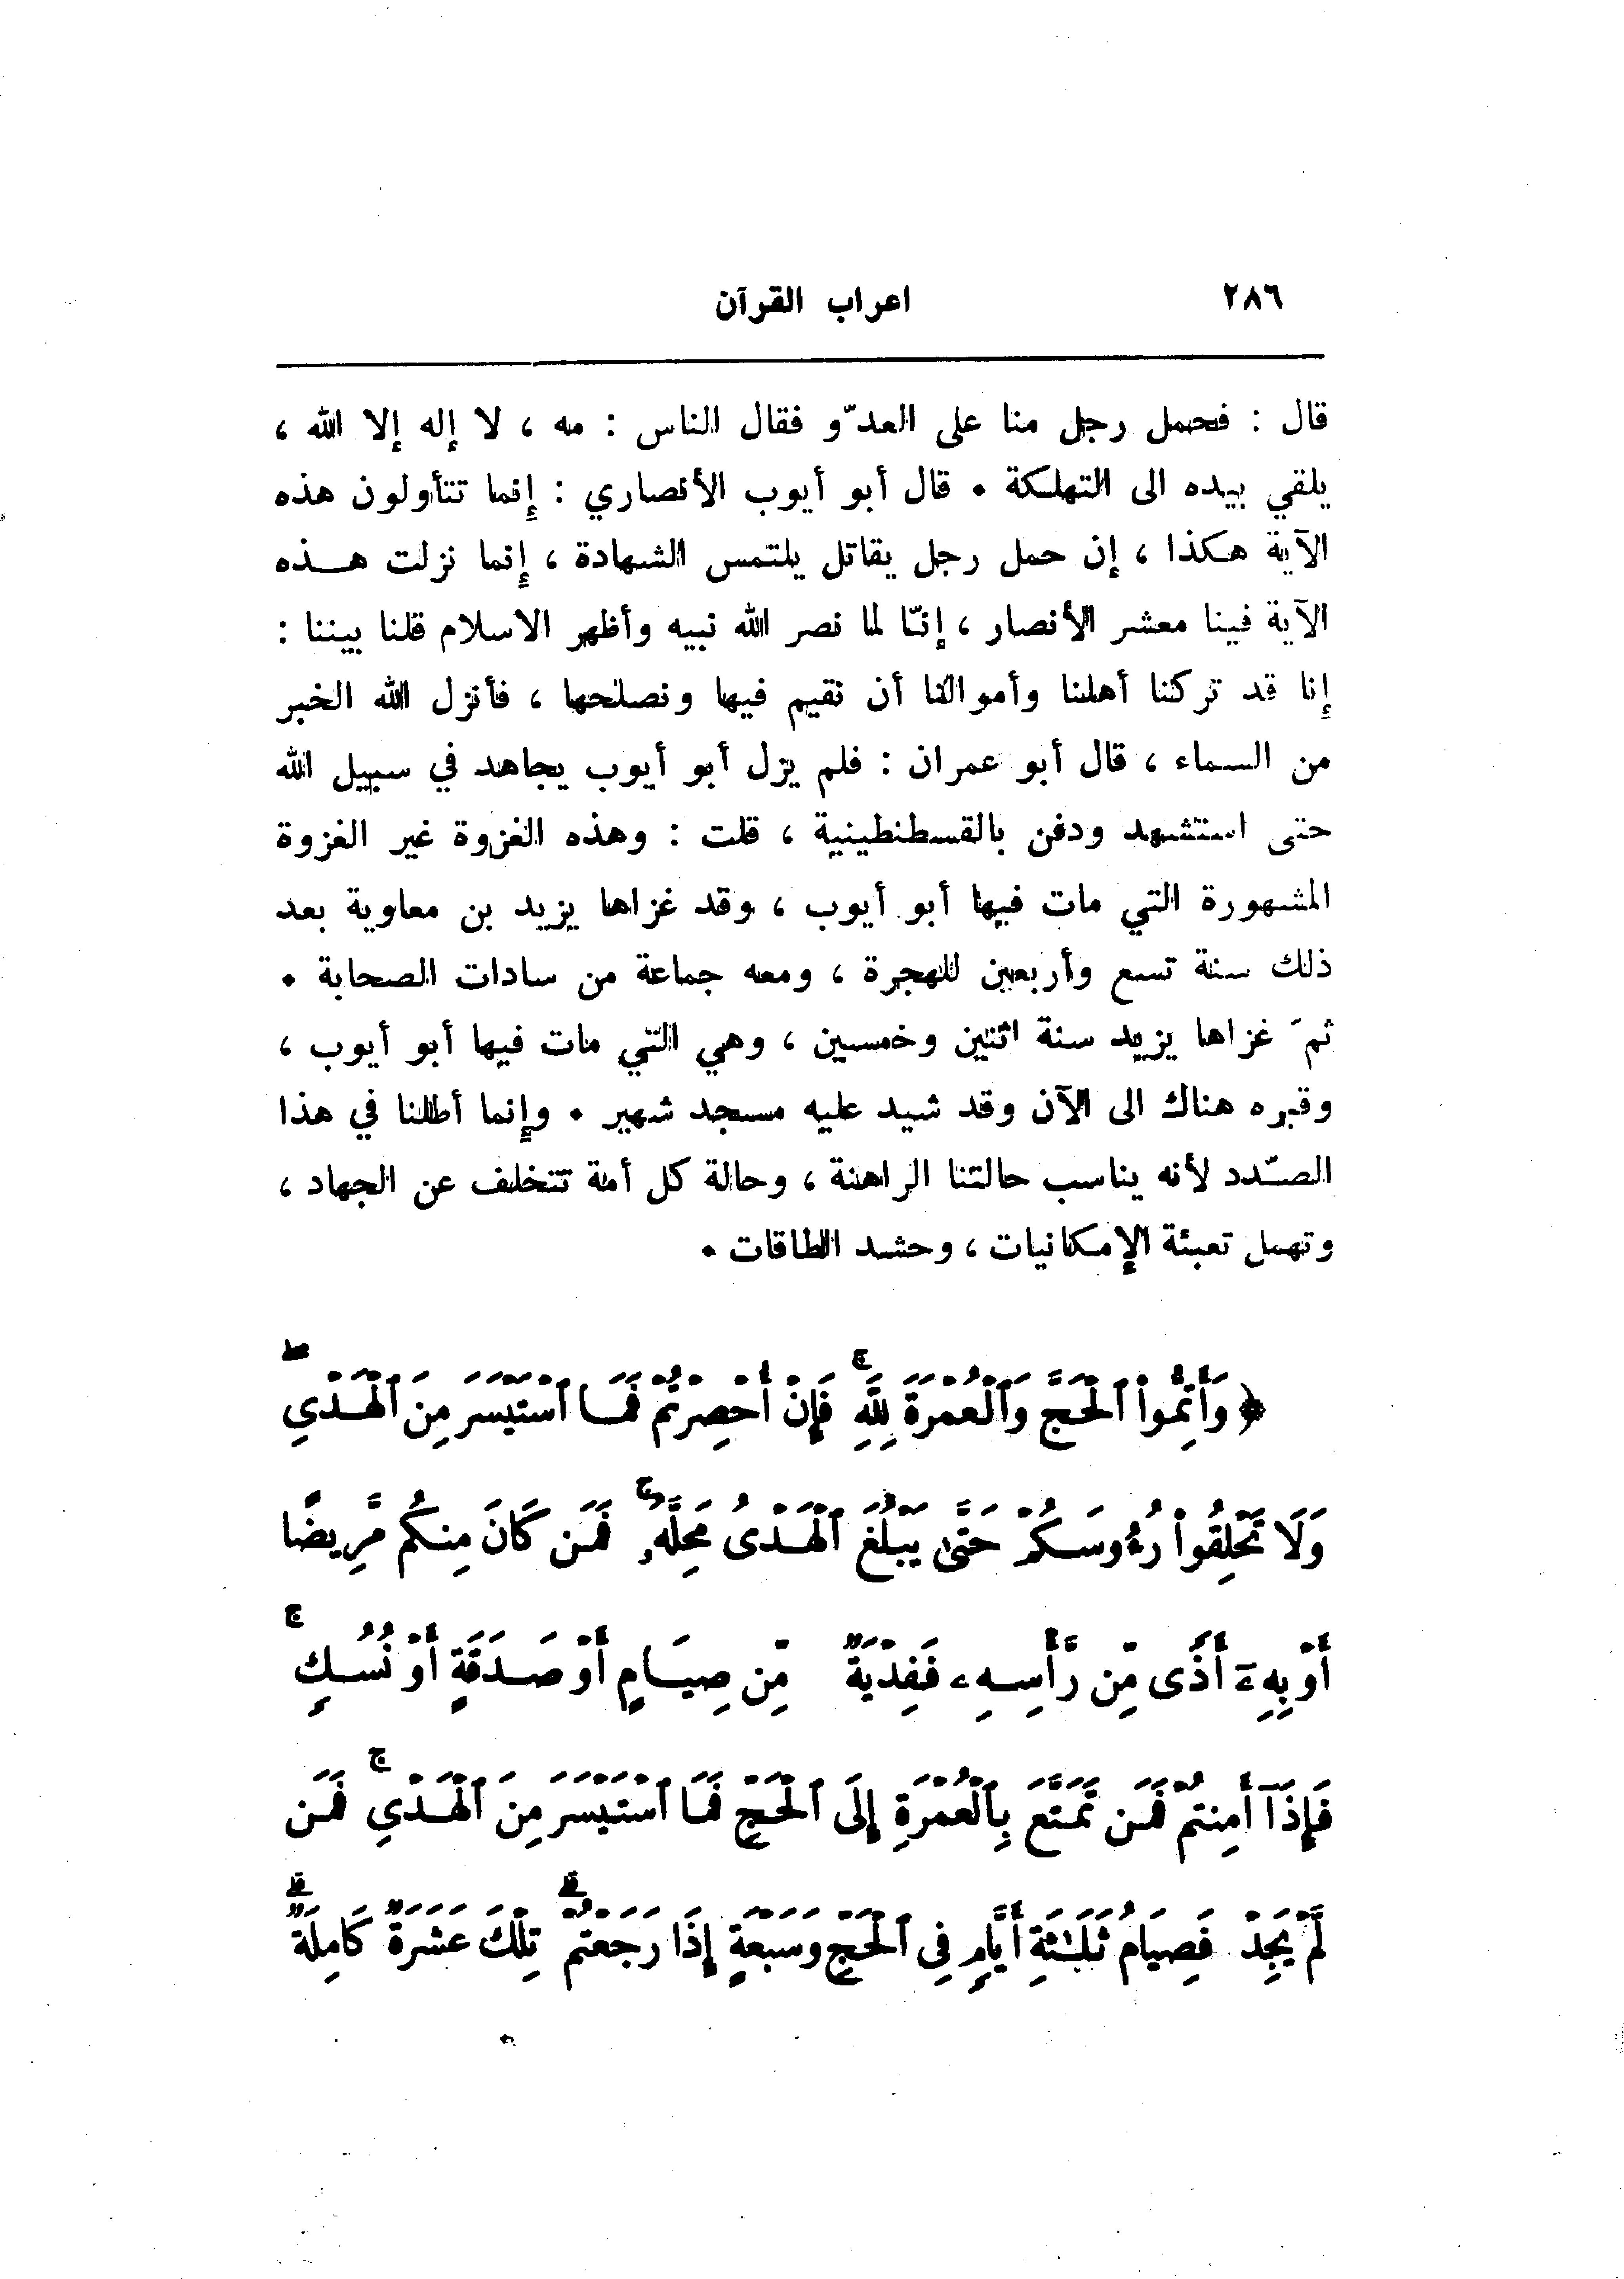 ٢٨٦
اعراب القرآن
قال : فحمل رجل منا على العدّو فقال الناس : مه ، لا إله إلا الله ،
يلقي بيده الى التهلكة . قال أبو أيوب الأنصاري : إنما تتأولون هذه
الآية هكذا ، إن حمل رجل يقاتل يلتمس الشهادة ، إنما نزلت هذه
الآية فينا معشر الأنصار ، إنّا لما نصر الله نبيه وأظهر الاسلام قلنا بيننا :
إنا قد تركنا أهلنا وأموالنا أن نقيم فيها ونصلحها ، فأنزل الله الخبر
من السماء ، قال أبو عمران : فلم يزل أبو أيوب يجاهد في سبيل الله
حتى استشهد ودفن بالقسطنطينية ، قلت : وهذه الغزوة غير الغزوة
المشهورة التي مات فيها أبو أيوب ، وقد غزاها يزيد بن معاوية بعد
ذلك سنة تسع وأربعين للهجرة ، ومعه جماعة من سادات الصحابة .
ثمّ غزاها يزيد سنة اثنين وخمسين ، وهي التي مات فيها أبو أيوب ،
وقبره هناك الى الآن وقد شيد عليه مسجد شهير . وإنما أطلنا في هذا
الصّدد لأنه يناسب حالتنا الراهنة ، وحالة كل أمة تتخلف عن الجهاد ،
وتهمل تعبئة الإمكانيات ، وحشد الطاقات .
﴿ وَأَتِمُّواْ ٱلْحَجَّ وَٱلْعُمْرَةَ لِلَّهِ ۚ فَإِنْ أُحْصِرْتُمْ فَمَا ٱسْتَيْسَرَ مِنَ ٱلْهَدْيِ ۖ
وَلَا تَحْلِقُواْ رُءُوسَكُمْ حَتَّىٰ يَبْلُغَ ٱلْهَدْىُ مَحِلَّهُۥ ۚ فَمَن كَانَ مِنكُم مَّرِيضًا
أَوْ بِهِۦٓ أَذًى مِّن رَّأْسِهِۦ فَفِدْيَةٌ مِّن صِيَامٍ أَوْ صَدَقَةٍ أَوْ نُسُكٍ ۚ
فَإِذَآ أَمِنتُمْ فَمَن تَمَتَّعَ بِٱلْعُمْرَةِ إِلَى ٱلْحَجِّ فَمَا ٱسْتَيْسَرَ مِنَ ٱلْهَدْيِ ۚ فَمَن
لَّمْ يَجِدْ فَصِيَامُ ثَلَـٰثَةِ أَيَّامٍ فِى ٱلْحَجِّ وَسَبْعَةٍ إِذَا رَجَعْتُمْ ۗ تِلْكَ عَشَرَةٌ كَامِلَةٌ ۗ